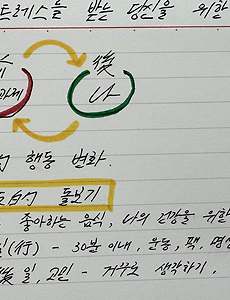 트레스를 받는 당신을 위한
나
행동 변화.
돌보기
좋아하는 음식, 나의 건강을 위한
(行) - 30분 이내, 운동, 책, 명상
일, 고민 - 거꾸로 생각하기,